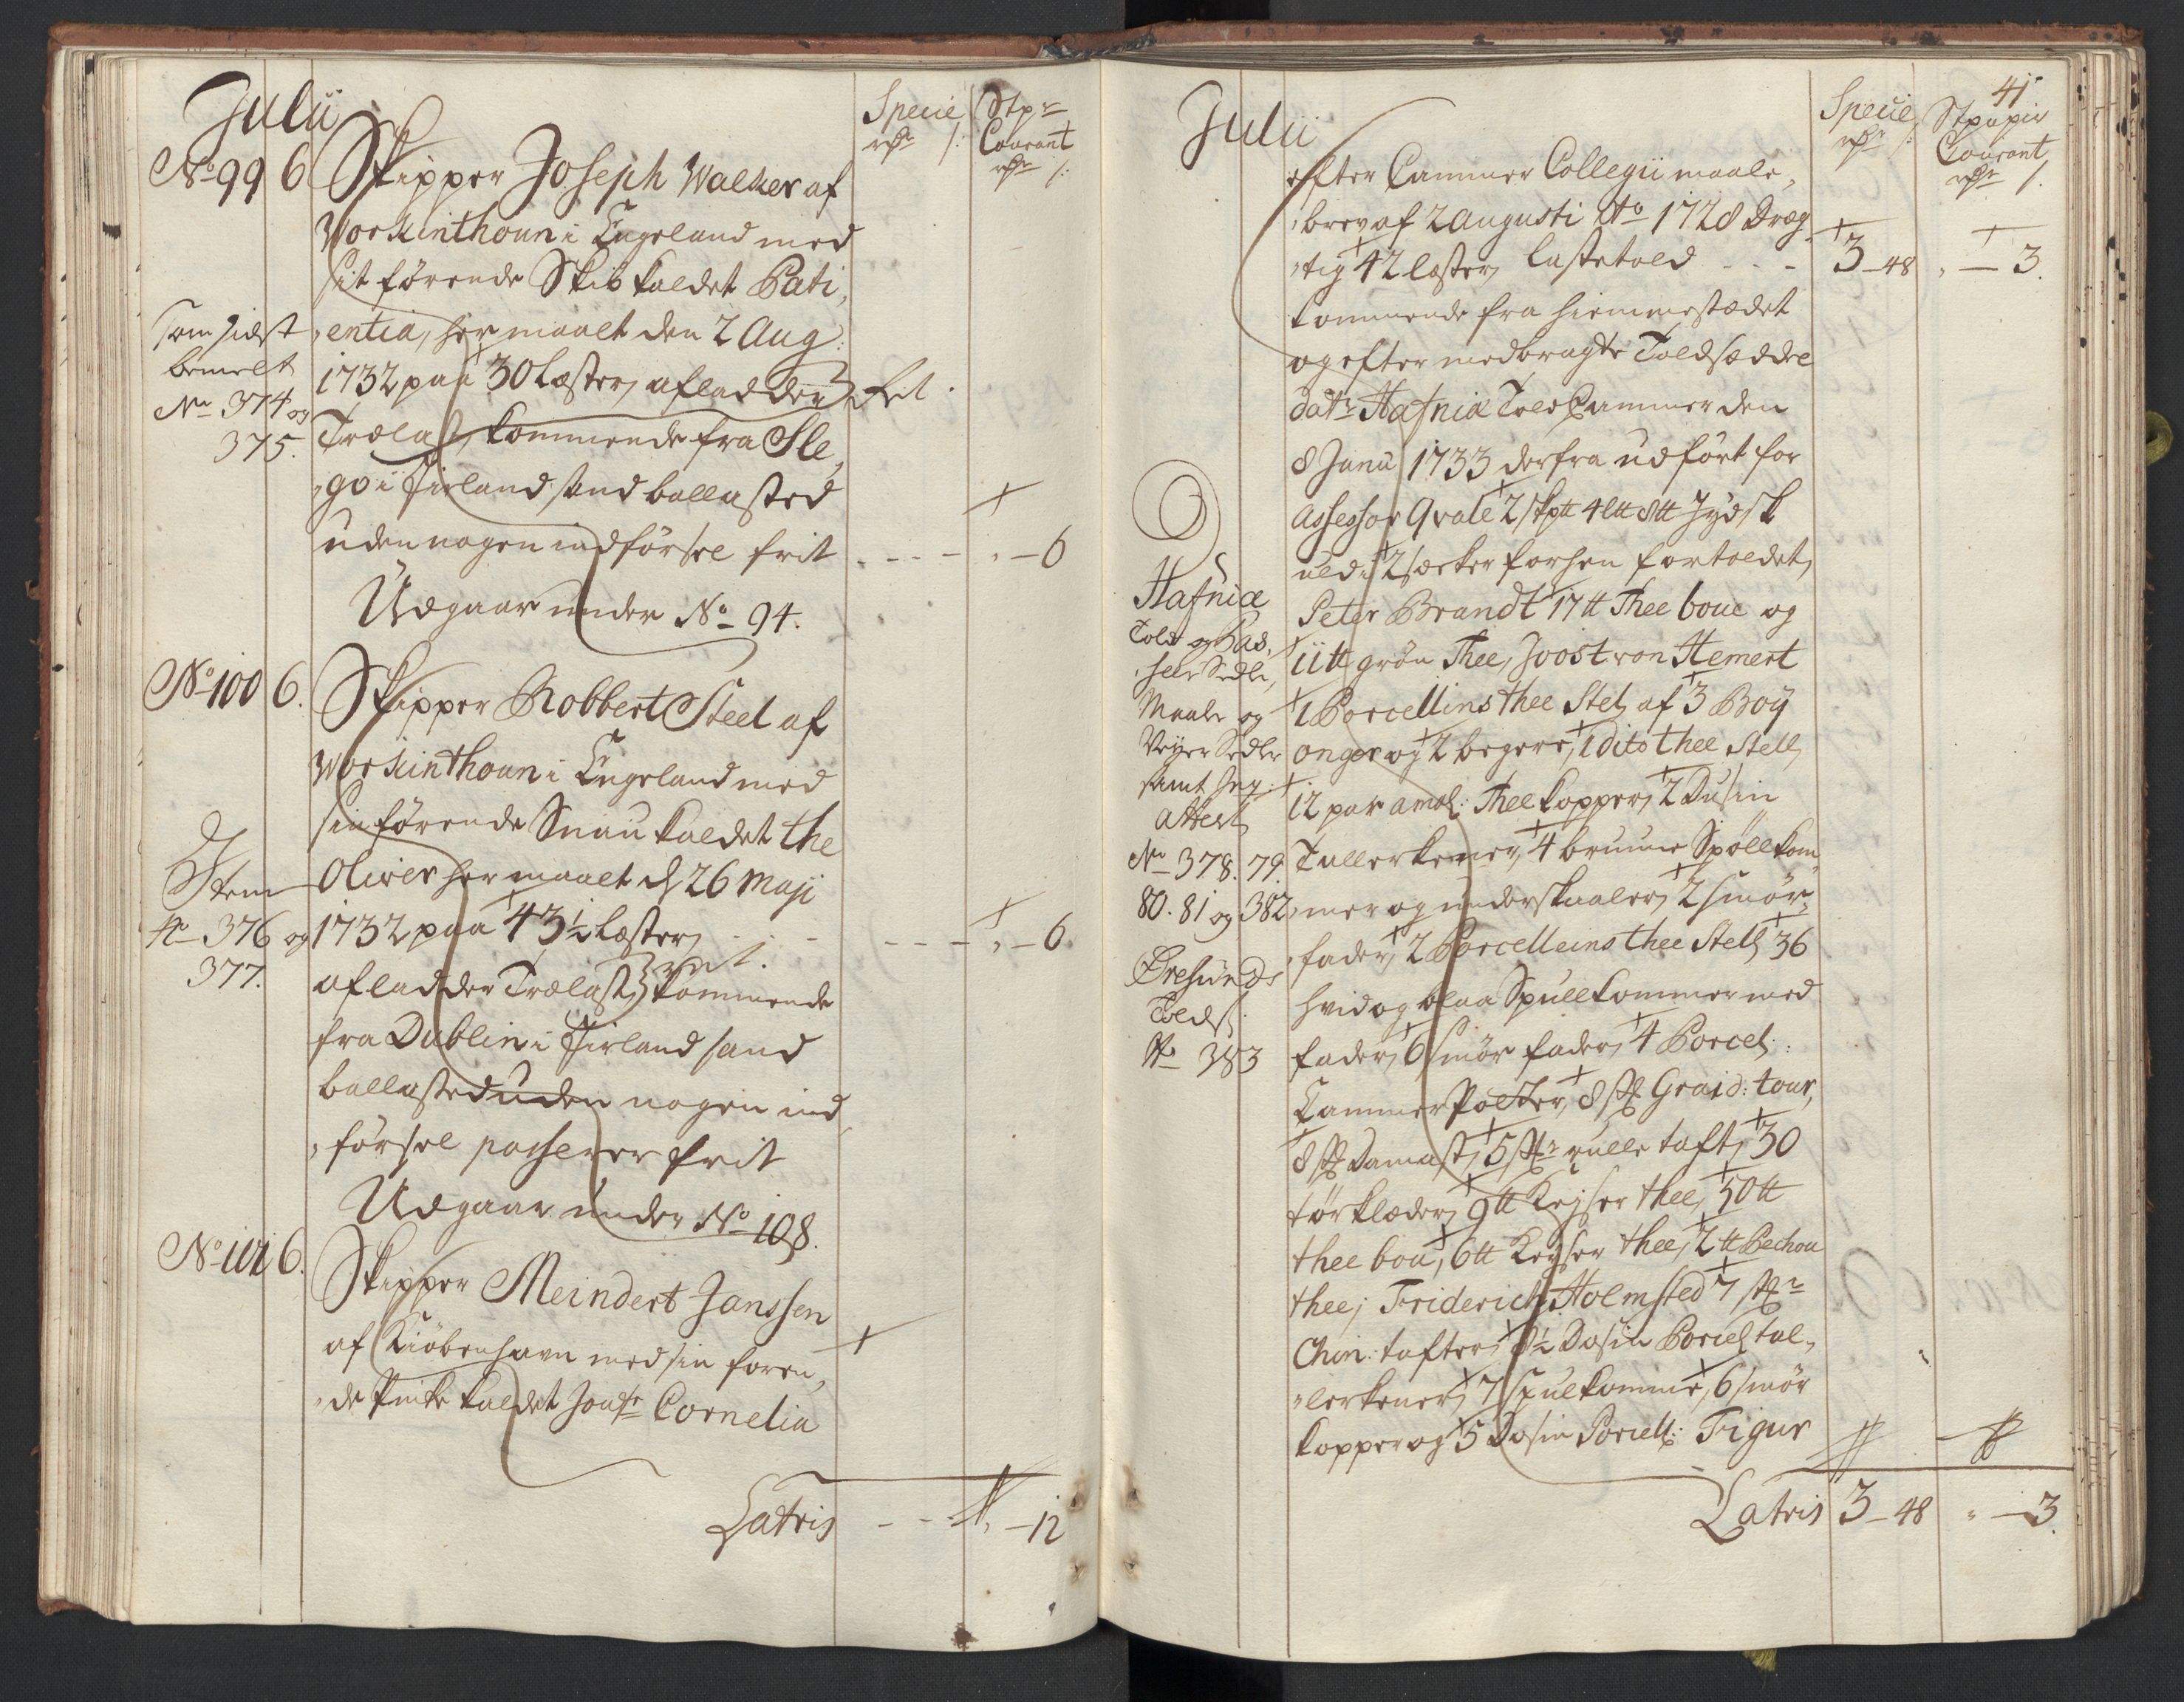 Julii
Specie Stpr
rdr s: Courant
rdr s:
No 99 6 Skipper Joseph Walker af
Workinthoun i Engeland med
sit førende Skib kaldet Pati,
,entia, her maalt den 2 Aug:
1732 paa 30 læster, aflad den frit.
Trælast, kommende fra Sle,
,go i Jirland sand ballasted
uden nogen indførsel frit - - - " - 6
Udgaar under No 94.
som sidst
bemelt
No 374 og
375.
No 100 6. Skipper Robbert Steel af
Workinthoun i Engeland med
sin førende Snau kaldet the
Oliver her maalt d 26 Maji
1732 paa 43½ læster, - - - " - 6
aflad der Trælast, kommende
fra Dublin i Jirland sand
ballasted uden nogen ind,
,førsel passerer frit
Udgaar under No 108.
Item
No 376 og
377.
No 101 6. Skipper Meindert Janssen
af Kiøbenhavn med sin føren,
,de Pinke kaldet Cornelia
Latris - - - " - 12
41
Julii
Specie Stpapir
rdr s: Courant
rdr s.
efter Cammer Collegii maale,
,brev af 2 Augusti Ao 1728 dræg,
,tig 42 læster, lastetold - - - 3 - 48 " - 3.
kommende fra hiemmestædet
og efter medbragte Toldsæddel
dat: Hafniæ Told Cammer den
8 Janu 1733 derfra udført for
Assessor Qvale 2 skptt 4 ltt 8 tt Jydsk
uld i 2 sæcker forhen fortoldet,
Peter Brandt 17 tt Thee boue og
11 tt grøn Thee, Joost von Hemert
1 Porcellins thee Stel, af 3 Boy
onger og 2 begere, 1 dito thee Stell,
12 par amol: Thee kopper, 2 Dusin
Tallerkener, 4 bruune Spøllkom,
,mer og underskaaler, 2 smør,
,fader, 2 Porcelleins thee Stell, 36
hvid og blaa Spullkommer med
fader, 6 smør fader, 4 Porcel:
Cammer Potter, 8 st Graid: tour,
8 st Damast, 5 st rulle taft, 30
tørklæder, 9 tt Keyser thee, 50 tt
thee bou, 6 tt Keyser thee, 2 tt Pechou
thee; Friderich Holmsted 7 st
Chin: tafter, 8½ Dosin Porcel, tal,
,lerkener, 7 Spulkomme, 6 smør
kopper og 5 Dosin Porcell: Figur
Hafniæ
Told og Pas,
,seer Sedle,
Maale og
Veyer Sedle
samt
Attest,
No 378. 79.
80. 81 og 382
Øresunds
Tolds:
No 383
Latris 3 - 48 " - 3.